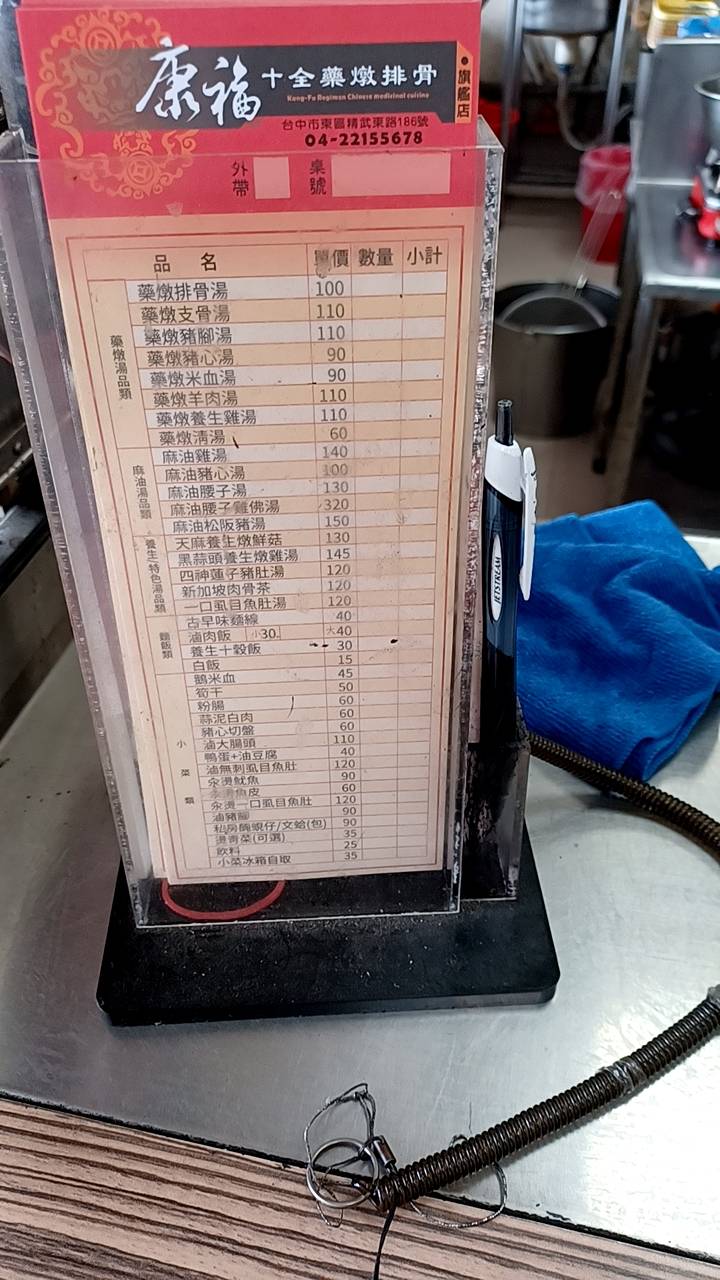 康福 十全藥燉排骨
Kang-Fu Regimen Chinese medicinal cuisine
旗艦店
台中市東區精武東路186號
04-22155678
外帶 桌號
品名 單價 數量 小計
藥燉湯品類
藥燉排骨湯 100
藥燉支骨湯 110
藥燉豬腳湯 110
藥燉豬心湯 90
藥燉米血湯 90
藥燉羊肉湯 110
藥燉養生雞湯 110
藥燉清湯 60
麻油湯品類
麻油雞湯 140
麻油豬心湯 100
麻油腰子湯 130
麻油腰子雞佛湯 320
麻油松阪豬湯 150
養生特色湯品類
天麻養生燉鮮菇 130
黑蒜頭養生燉雞湯 145
四神蓮子豬肚湯 120
新加坡肉骨茶 120
一口虱目魚肚湯 120
麵飯類
古早味麵線 40
滷肉飯 小30 大40
養生十穀飯 30
白飯 15
小菜類
鵝米血 45
筍干 50
粉腸 60
蒜泥白肉 60
豬心切盤 60
滷大腸頭 110
鴨蛋+油豆腐 40
滷無刺虱目魚肚 120
汆燙魷魚 90
汆燙魚皮 60
汆燙一口虱目魚肚 120
滷豬腳 90
私房醃蜆仔/文蛤(包) 90
燙青菜(可選) 35
飲料 25
小菜冰箱自取 35
JETSTREAM